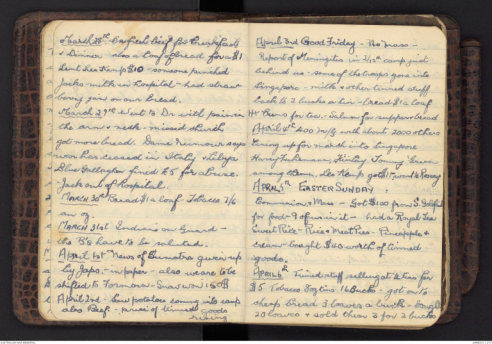 March 28th Confined Beef for breakfast
& Dinner also a loaf of bread for us $1
Lent Les Kemp $10 - someone pinched
Jacks milk in hospital - had straw
berry jam on our bread.
March 29th went to Dr with pain in
the arm & neck - missed church
got more bread. Dame Rumour says
war has ceased in Italy & Libya
Blue Gallagher fined £5 for abuse.
Jack out of hospital.
March 30th Bread $1 a loaf Tobacco 7/6
an oz.
March 31st Indians on guard -
the B's have to be saluted.
April 1st News of Sumatra given up
by Japs - in paper - also were to be
shifted to Formosa - Swarow 15
April 2nd - Sow potatoes coming into camp
also Beef - price of tinned goods
rising
April 3rd Good Friday - No Mass -
Report of Meningitis in camp just
behind us - some of the troops gone into
Singapore - milk & other tinned stuff
back to 2 bucks a tin - bread $1 a loaf
Prawns for tea. Salmon for supper bread
April 4th 200 m/g with about 2000 others
going up for march into Singapore
Harry Jim Tommy Green
among them, Les Kemp got $1 went to Harry
April 5th Easter Sunday.
Communion & Mass - Got $100 from S.
for food - 9 of us in it - had a Royal Tea
Sweet Rice - Rice & Meat Pies - Pineapple &
cream - bought $40 worth of tinned
goods.
April 6th Tinned stuff selling at bucks for
$5 Tobacco 8 ozs 16 Bucks - got onto
cheap bread 3 loaves a buck - bought
20 loaves & sold them 3 for 2 bucks